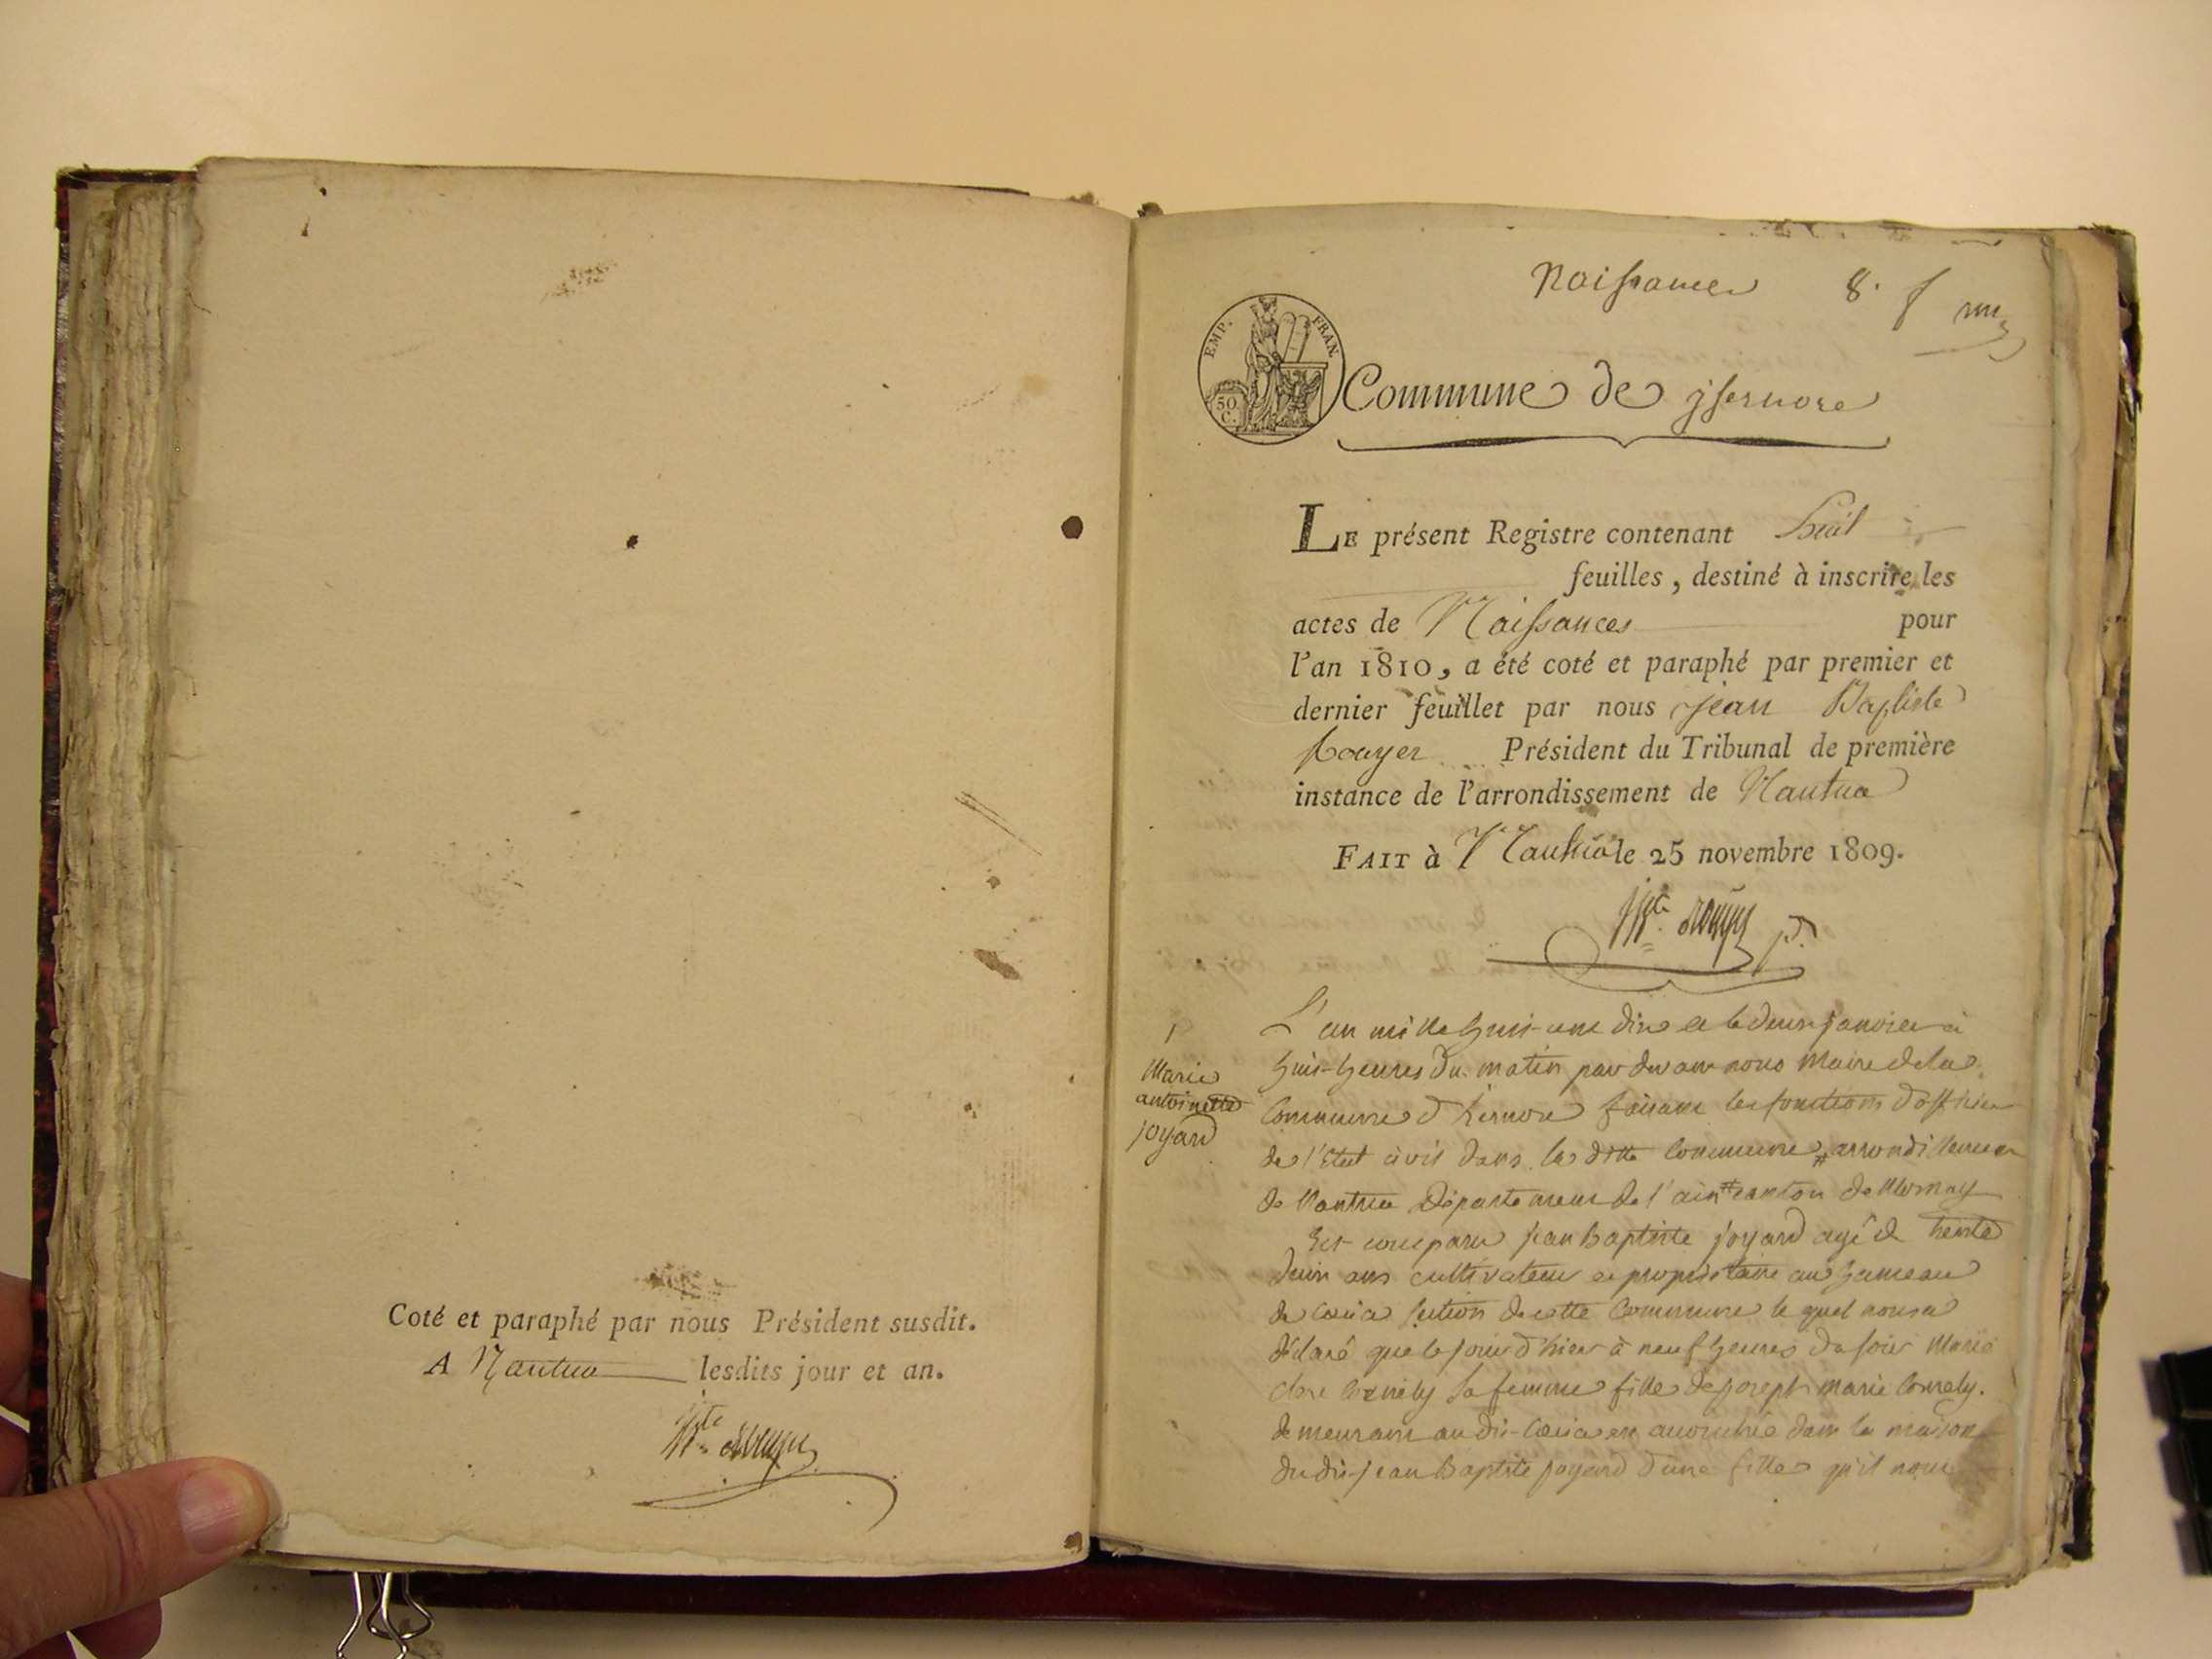 Coté et paraphé par nous Président susdit.
A Nantua lesdits jour et an.
Naissances 8. f
EMP. FRAN.
50. C.
Commune de ysernore
LE présent Registre contenant huit
feuilles, destiné à inscrire les
actes de Naissances pour
l'an 1810, a été coté et paraphé par premier et
dernier feuillet par nous jean Baptiste
Rouyer Président du Tribunal de première
instance de l'arrondissement de Nantua
FAIT à Nantua le 25 novembre 1809.
1
Marie
antoinette
joyard
L'an mille huit cent dix et le deux janvier à
huit heures du matin par devant nous Maire de la
Commune d'hernore faisant les fonctions d'officier
de l'état civil dans la ditte commune # arrondissement
de Nantua Département de l'ain # canton de
Est comparu jean Baptiste joyard agé de trente
deux ans cultivateur et propriétaire au hameau
de section de cette Commune le quel nous a
déclaré que le jour d'hier à neuf heures du soir Marie
clere Cornely sa femme fille de joseph marie Cornely.
demeurant au dit est accouchée dans la maison
du dit jean Baptiste joyard d'une fille qu'il nous